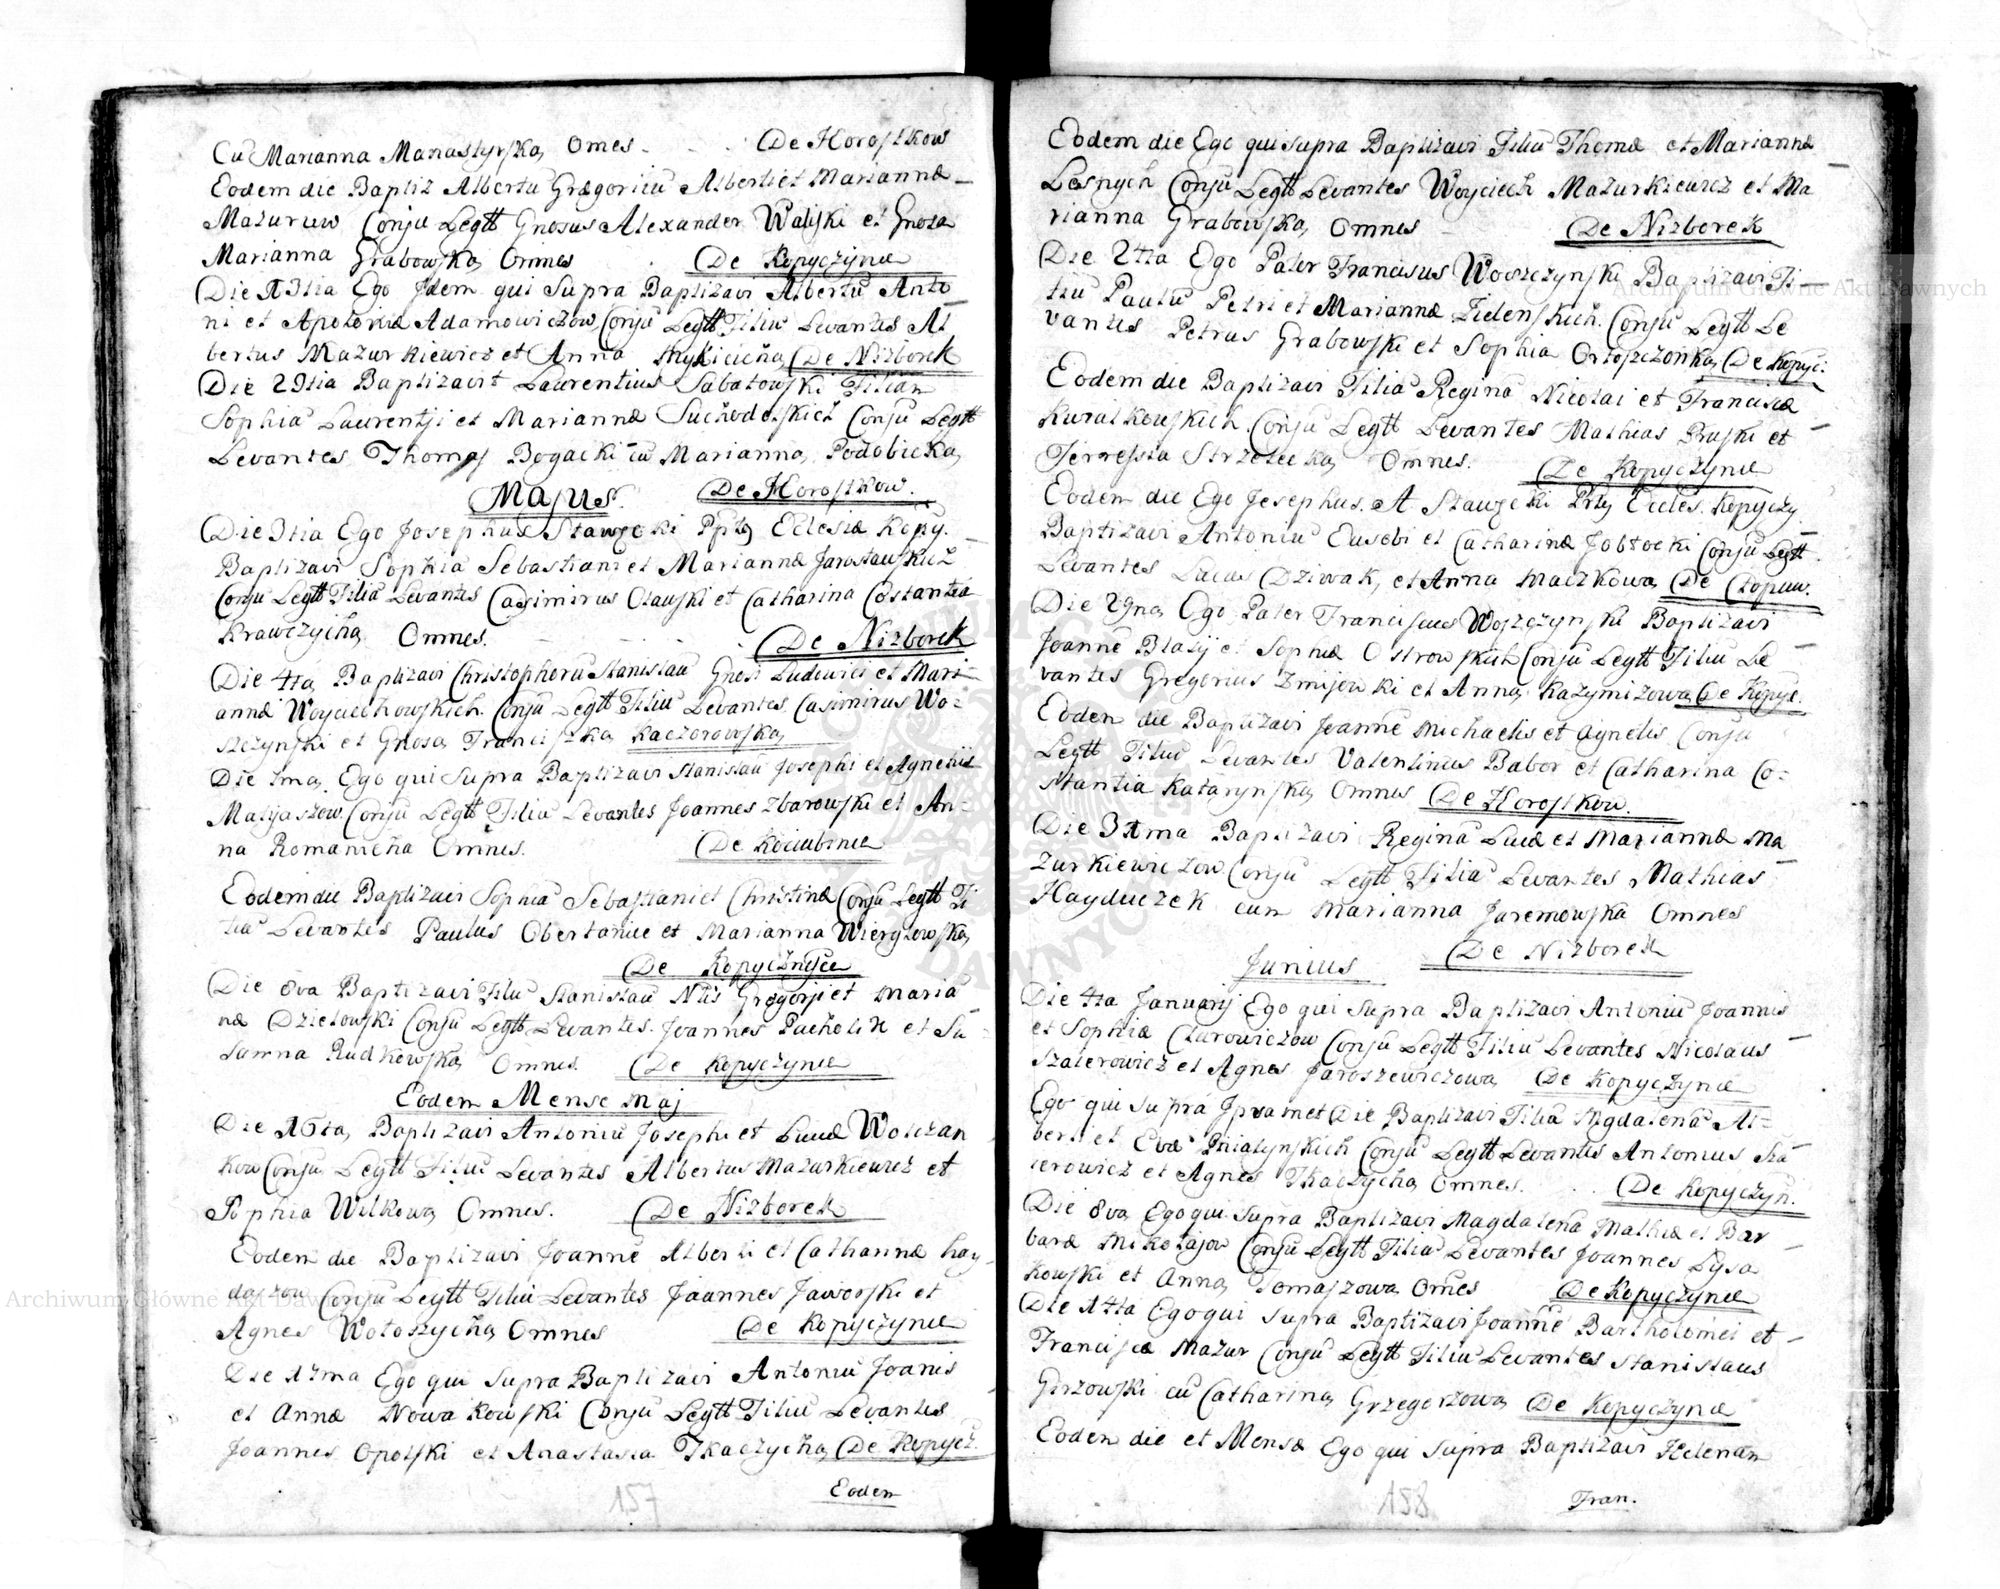 Cũ Marianna Manastyrska, Omes - De Horostkow
Eodem die Baptiz Albertũ Grægoriũ Alberti et Mariannæ
Mazuruw Conju Legtt Gnosus Alexander Waliski et Gnosa
Marianna Grabowska, Omnes De Kopyczynce
Die 13tia Ego Idem qui Supra Baptizavi Albertũ Anto
ni et Apoloniæ Adamowiczow, Conju Legtt Filiũ Levantes Al
bertus Mazurkiewicz et Anna De Nizborek
Die 29tia Baptizavit Laurentius Sabatowski Filiam
Sophiã Laurentji et Mariannæ Suchodolskich Conju Legtt
Levantes Thomas Bogacki cũ Marianna, Podobicka,
Majus. De Horostkow.
Die 3tia Ego Josephus Stawęcki Pptg Eclesiæ Kopy.
Baptizavi Sophiã Sebastiani et Mariannæ Jarosławskich
Conju Legtt Filiã Levantes Casimirus Olawski et Catharina Costantia
Krawczycha, Omnes. De Nizborek
Die 4ta, Baptizavi Christophorũ Stanislaũ Gnosi Ludovici et Mari
annæ Woyciechowskich. Conjũ Legtt Filiũ Levantes. Casimirus Wo=
szczynski et Gnosa Franciszka Kaczorowska,
Die 7ma, Ego qui Supra Baptizavi Stanislaũ Josephi et Agnetis
Matyaszow. Conju Legtt Filiũ Levantes Joannes Zbarowski et An=
na Romanicha Omnes. De Kociubince
Eodem die Baptizavi Sophiã Sebastiani et Christinæ Conju Legtt Fi
liã Levantes Paulus Obertaniec et Marianna Wiergzowska,
De Kopyczynce
Die 8va Baptizavi Filiũ Stanislaũ Nlis Gregorji et Maria
næ Dzielowski Conju Legtt Levantes. Joannes Pacholik et Su
sanna Rudkowska, Omnes. De Kopyczynce
Eodem Mense Maj
Die 16ta, Baptizavi Antoniũ Josephi et Lucæ Wolczan
kow Conju Legtt Filiũ Levantes Albertus Mazurkiewicz et
Sophia Wilkowa, Omnes. De Nizborek
Eodem die Baptizavi Joannẽ Alberti et Catharinæ hay
daszow Conju Legtt Filiũ Levantes Joannes Jaworski et
Agnes Wołoszycha, Omnes De Kopyczynce
Die 17ma Ego qui Supra Baptizavi Antoniũ Joanis
et Annæ Nowakowski Conju Legtt Filiũ Levantes
Joannes Opolski et Anastasia Tkaczycha, De Kopycz.
Eodem
157
Eodem die Ego qui Supra Baptizavi Filiũ Thomæ et Mariannæ
Lesnych Conju Legtt Levantes Woyciech Mazurkiewicz et Ma
rianna Grabowska, Omnes De Nizborek
Die 24ta Ego Pater Franciscus Woszczynski Baptizavi Fi
liũ Paulũ Petri et Mariannæ Zielenskich. Conju Legtt Le
vantes Petrus Grabowski et Sophia De Kopyc:
Eodem die Baptizavi Filiã Reginã Nicolai et Franciscæ
Kuratkowskich. Conju Legtt Levantes Mathias Pruski et
Terressia Strzelecka, Omnes. De Kopyczynce
Eodem die Ego Josephus. A Stawęcki Ptg Eccles. Kopyczy.
Baptizavi Antoniũ Eusebi et Catharinæ Jobłocki Conju Legtt
Levantes Lucas Dziwak, et Anna Maczkowa, De Chopuw.
Die 29na, Ego Pater Franciscus Woszczynski Baptizavi
Joannẽ Błasij et Sophiæ Ostrowskich Conju Legtt Filiũ Le
vantes Gregorius Zmijowski et Anna, Kazymirzowa, De Kopycz.
Eodem die Baptizavi Joannẽ Michaelis et Agnetis Conju
Legtt Filiũ Levantes Valentinus Babor et Catharina Co=
stantia Katarynska, Omnes De Horostkow.
Die 31ma Baptizavi Reginã Lucæ et Mariannæ Ma
zurkiewiczow Conju Legtt Filiã Levantes Mathias
Hayduczek cum Marianna Jaremowska Omnes
Junius De Nizborek
Die 4ta Januarij Ego qui Supra Baptizavi Antoniũ Joannis
et Sophiæ Clarowiczow Conju Legtt Filiũ Levantes Nicolaus
Szalerowicz et Agnes Jaroszewiczowa, De Kopyczynce
Ego qui Supra Ipsamet Die Baptizavi Filiã Magdalenã Al=
berti et Evæ Pniatynskich Conju Legtt Levantes Antonius Sza
lerowicz et Agnes Tkaczycha, Omnes. De Kopyczyn.
Die 8va, Ego qui Supra Baptizavi Magdalenã Mathiæ et Bar
baræ Mikołajow Conju Legtt Filiã Levantes Joannes Lysa
kowski et Anna, Tomaszowa Omes De Kopyczynce
Die 14ta Ego qui Supra Baptizavi Joannẽ Bartholomei et
Franciscæ Mazur Conju Legtt Filiũ Levantes Stanislaus
Gorzowski cũ Catharina, Grzegorzowa, De Kopyczynce
Eodem die et Mensæ Ego qui Supra Baptizavi Helenam
Fran.
158
Archiwum Główne Akt Dawnych